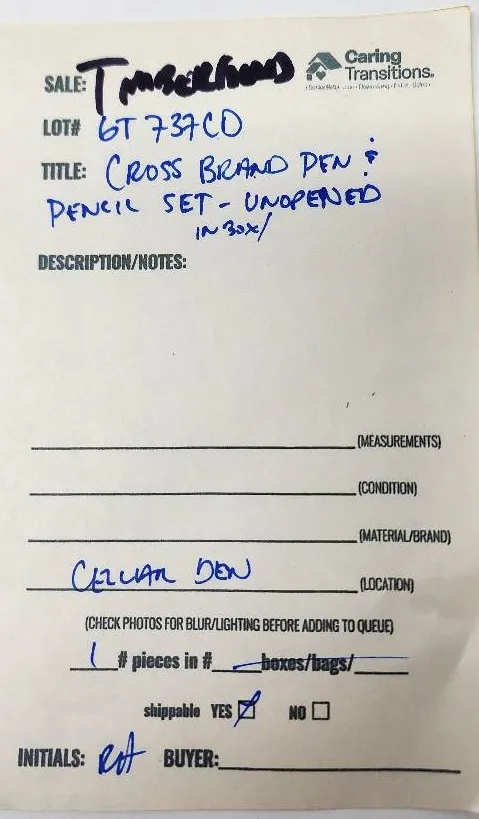 SALE:
Caring
Transitions®
LOT# GT 737CD
TITLE: CROSS BRAND PEN &
PENCIL SET - UNOPENED
IN BOX/
DESCRIPTION/NOTES:
(MEASUREMENTS)
(CONDITION)
(MATERIAL/BRAND)
CELLAR DEN (LOCATION)
(CHECK PHOTOS FOR BLUR/LIGHTING BEFORE ADDING TO QUEUE)
1 # pieces in # boxes/bags/
shippable YES NO
INITIALS: RA BUYER: